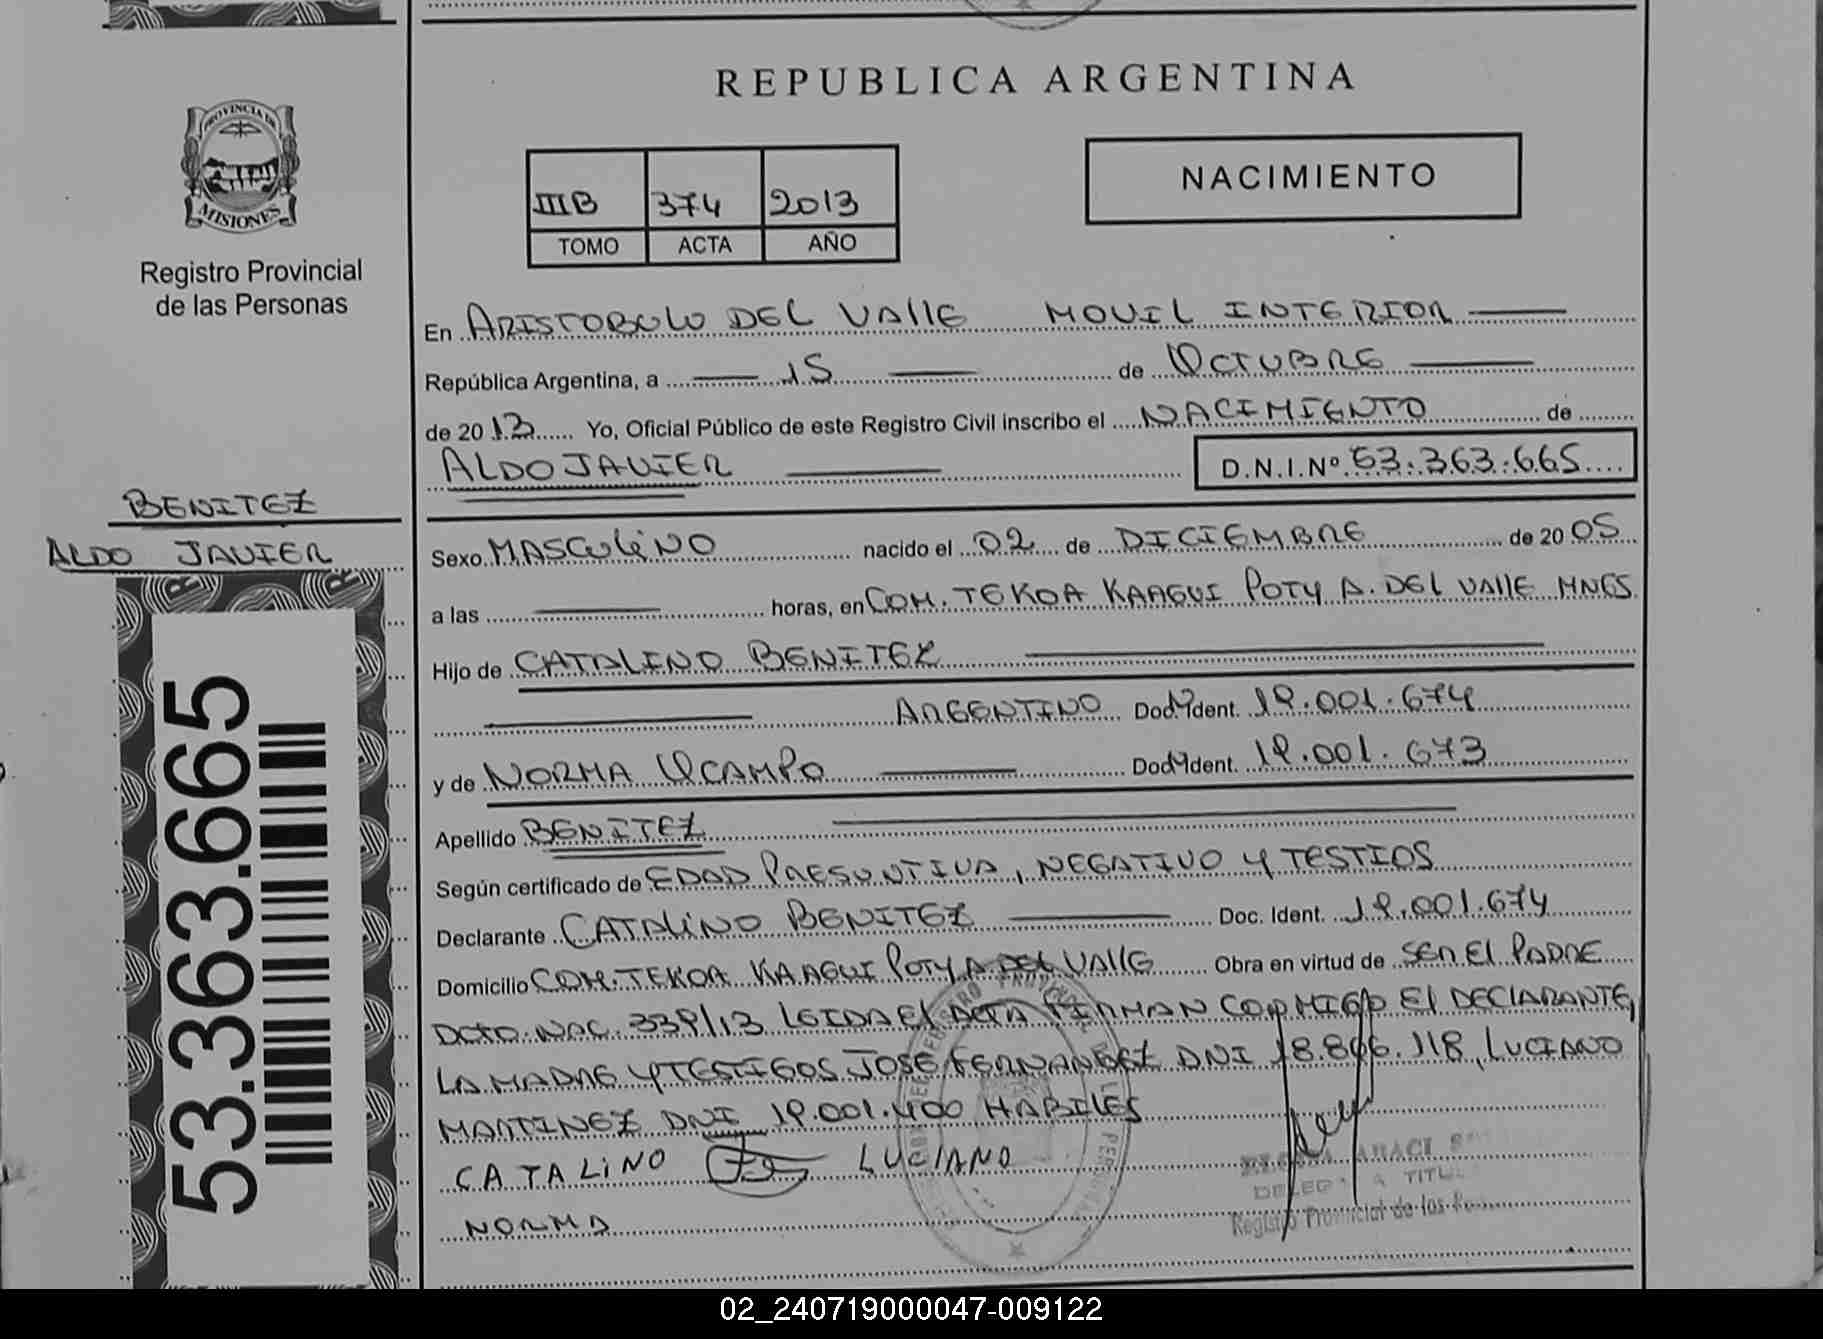 REPUBLICA ARGENTINA
PROVINCIA DE
MISIONES
Registro Provincial
de las Personas
NACIMIENTO
IIIB 374 2013
TOMO ACTA AÑO
En ARISTOBULO DEL VALLE MOVIL INTERIOR
República Argentina, a 15 de OCTUBRE
de 2013 Yo, Oficial Público de este Registro Civil inscribo el NACIMIENTO de
ALDO JAVIER D.N.I.Nº 53.363.665
BENITEZ
ALDO JAVIER
53.363.665
Sexo MASCULINO nacido el 02 de DICIEMBRE de 2005
a las horas, en COM. TEKOA KAAGUI POTY A. DEL VALLE MNES
Hijo de CATALINO BENITEZ
ARGENTINO Doc. Ident. 19.001.674
y de NORMA OCAMPO Doc. Ident. 19.001.673
Apellido BENITEZ
Según certificado de EDAD PRESUNTIVA, NEGATIVO Y TESTIOS
Declarante CATALINO BENITEZ Doc. Ident. 19.001.674
Domicilio COM. TEKOA KAAGUI POTY A. DEL VALLE Obra en virtud de SER EL PADRE
DCTO. NAC. 339/13 LEIDA EL ACTA FIRMAN CONMIGO EL DECLARANTE,
LA MADRE Y TESTIGOS JOSE FERNANDEZ DNI 18.846.118, LUCIANO
MARTINEZ DNI 19.001.400 HABILES
CATALINO LUCIANO
NORMA
ARACI
TITUL
Registro Provincial de las
02_240719000047-009122